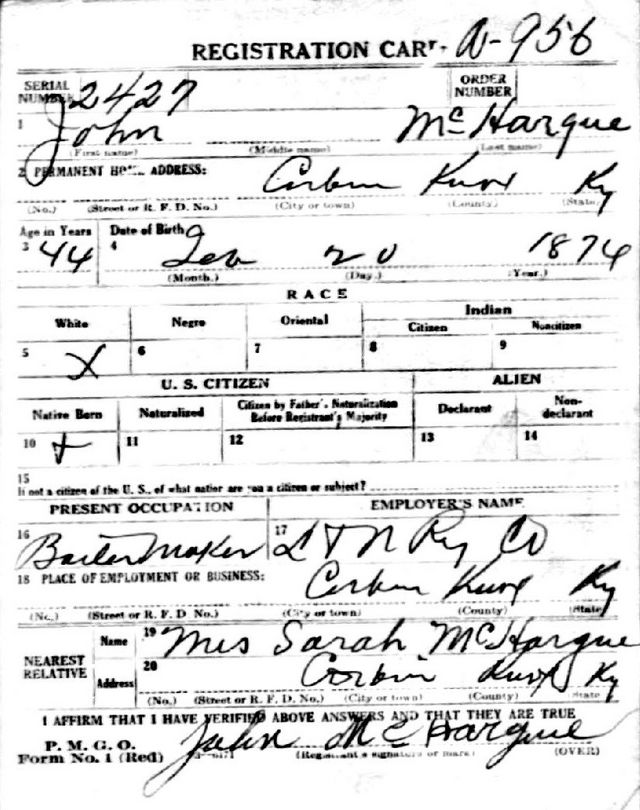 REGISTRATION CARD A-956
SERIAL NUMBER 2427 ORDER NUMBER
1 John McHargue
(First name) (Middle name) (Last name)
2 PERMANENT HOME ADDRESS: Corbin Knox Ky
(No.) (Street or R. F. D. No.) (City or town) (County) (State)
Age in Years Date of Birth
3 44 4 Feb 20 1874
(Month.) (Day.) (Year.)
RACE
White Negro Oriental Indian
Citizen Noncitizen
5 X 6 7 8 9
U. S. CITIZEN ALIEN
Native Born Naturalized Citizen by Father's Naturalization Before Registrant's Majority Declarant Non-declarant
10 X 11 12 13 14
15
If not a citizen of the U. S., of what nation are you a citizen or subject?
PRESENT OCCUPATION EMPLOYER'S NAME
16 Boiler Maker 17 L & N Ry Co
18 PLACE OF EMPLOYMENT OR BUSINESS: Corbin Knox Ky
(No.) (Street or R. F. D. No.) (City or town) (County) (State)
NEAREST RELATIVE Name 19 Mrs Sarah McHargue
Address 20 Corbin Knox Ky
(No.) (Street or R. F. D. No.) (City or town) (County) (State)
I AFFIRM THAT I HAVE VERIFIED ABOVE ANSWERS AND THAT THEY ARE TRUE
P. M. G. O.
Form No. 1 (Red) John McHargue
(Registrant's signature or mark) (OVER)